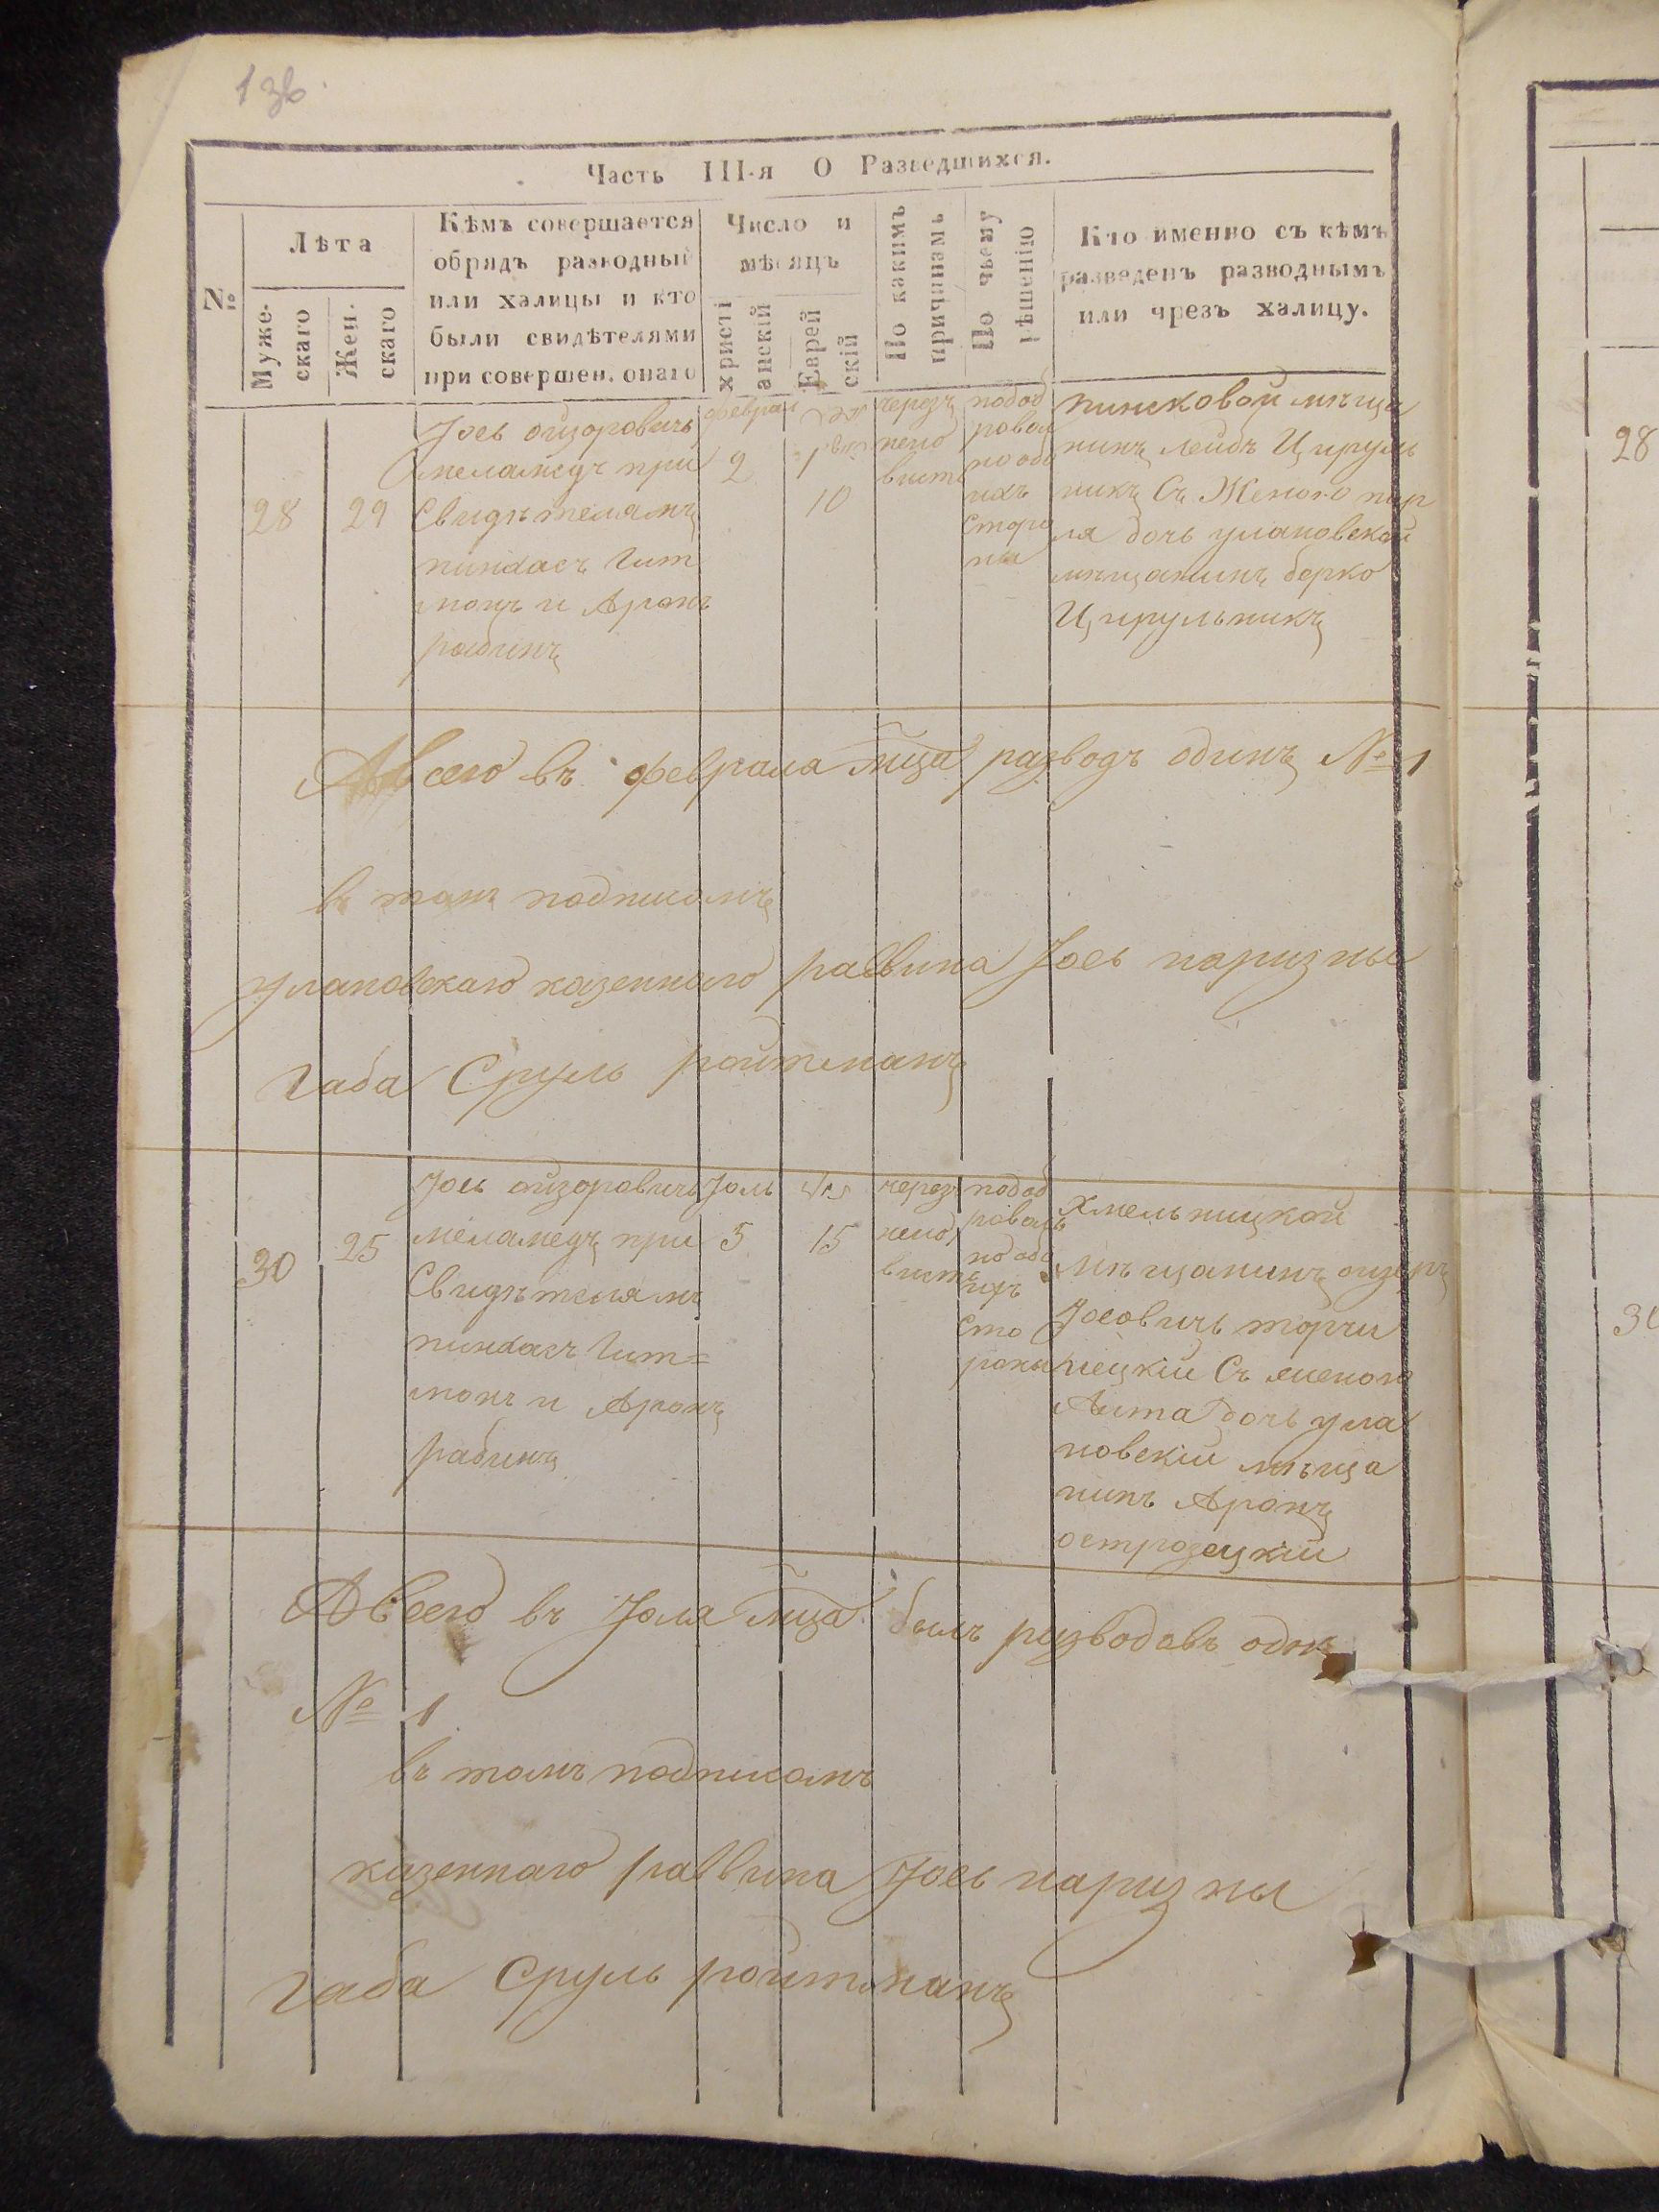 13в.
Часть III-я О Разведшихся.
№
Лѣта
Муже-
скаго
Жен.
скаго
Кѣмъ совершается
обрядъ разводный
или халицы и кто
были свидѣтелями
при совершен. онаго
Число и
мѣсяцъ
христі
анскій
Еврей
скій
По какимъ
причинамъ
По чьему
рѣшенію
Кто именно съ кѣмъ
разведенъ разводнымъ
или чрезъ халицу.
28
29
Іось ойзоровичъ
меламедъ при
Свидѣтелямъ
пинхасъ Гит
манъ и Аронъ
рабинъ
феврал
2
10
черезъ
нено
висть
подоб
ровол
но обо
ихъ
сторо
ны
пиковой мѣща
нинъ Лейбъ Цируль
никъ Съ Женою пер
ля дочь улановской
мѣщанинъ берко
Цирульникъ
А всего въ феврала мца разводъ одинъ № 1
въ томъ подписамъ
улановскаго казеннаго раввина Іось паризны
габа Сруль ройтманъ
30
25
Іось ойзоровичъ
меламедъ при
Свидѣтелямъ
пинхасъ Гит=
манъ и Аронъ
рабинъ
Іоль
5
15
черезъ
нено
висть
подоб
роволь
но обо
ихъ
сто
роны
Хмельницкой
мѣщанинъ ойзеръ
Іосовичъ торчи
нецкій Съ женою
Аита дочь ула
новскій мѣща
нинъ Аронъ
острозецкій
А всего въ Іоля мца былъ разводовъ одно
№ 1
въ томъ подписамъ
казеннаго раввина Іось паризны
габа Сруль ройтманъ
28